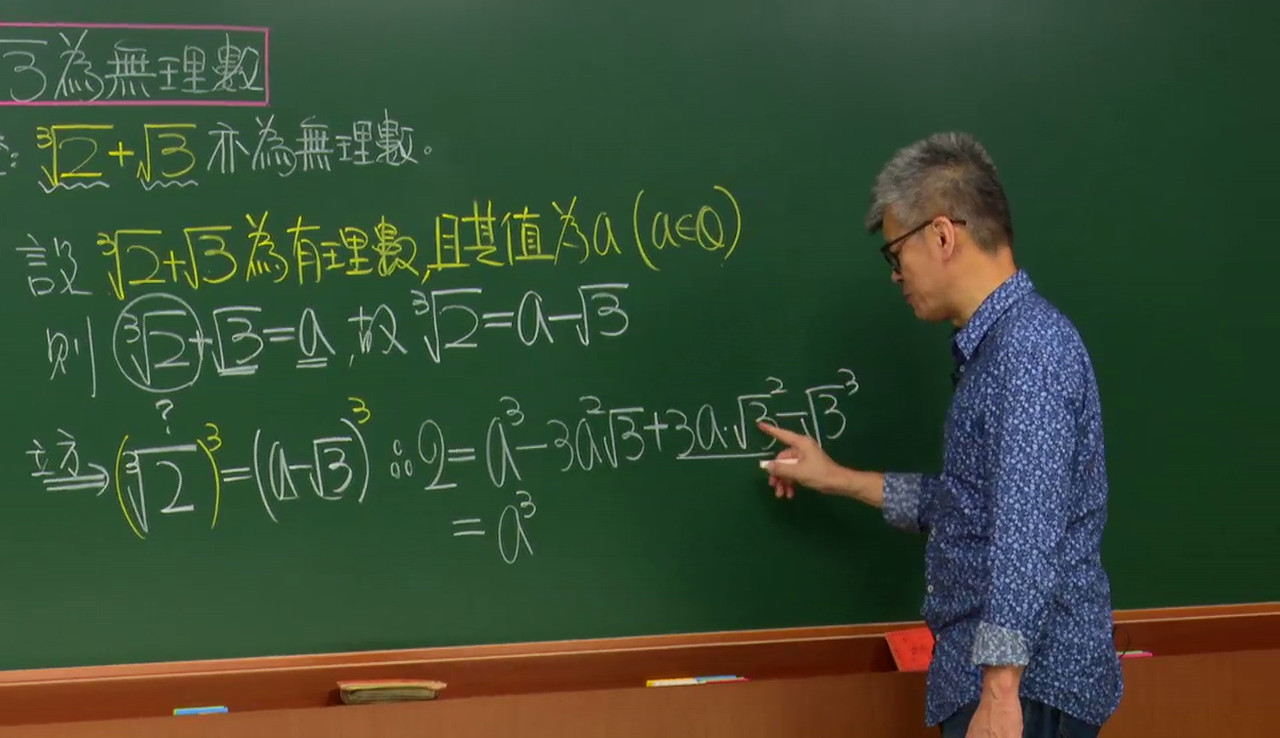 √3為無理數
: ∛2+√3 亦為無理數。
設 ∛2+√3為有理數,且其值為a(a∈Q)
則 ∛2+√3=a,故∛2=a-√3
?
立方⇒(∛2)³=(a-√3)³ ∴2=a³-3a²√3+3a·√3²-√3³
=a³